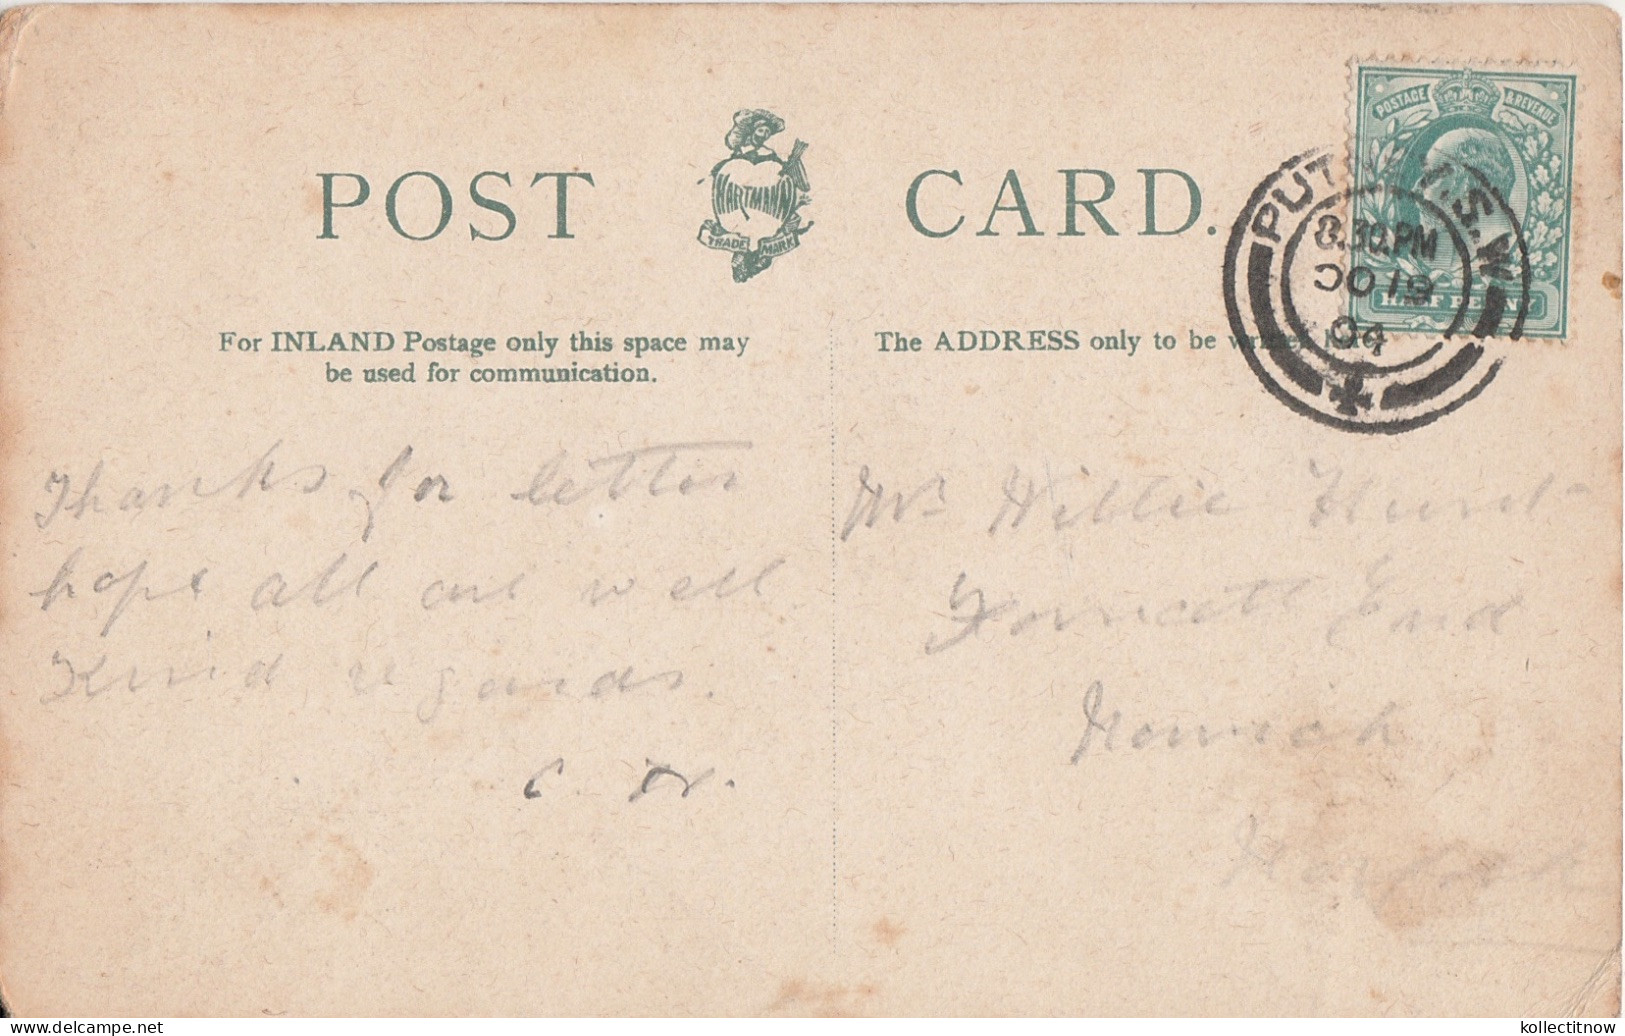 POST CARD.
HARTMANN
TRADE MARK
POSTAGE & REVENUE
HALF PENNY
PUTNEY.S.W
8.30.PM
OC 19
04
For INLAND Postage only this space may
be used for communication.
The ADDRESS only to be written here
Thanks for letter
hope all are well
Kind regards.
Mr Willie Hurst
Forncett End
Norwich
Norfolk
kollectitnow